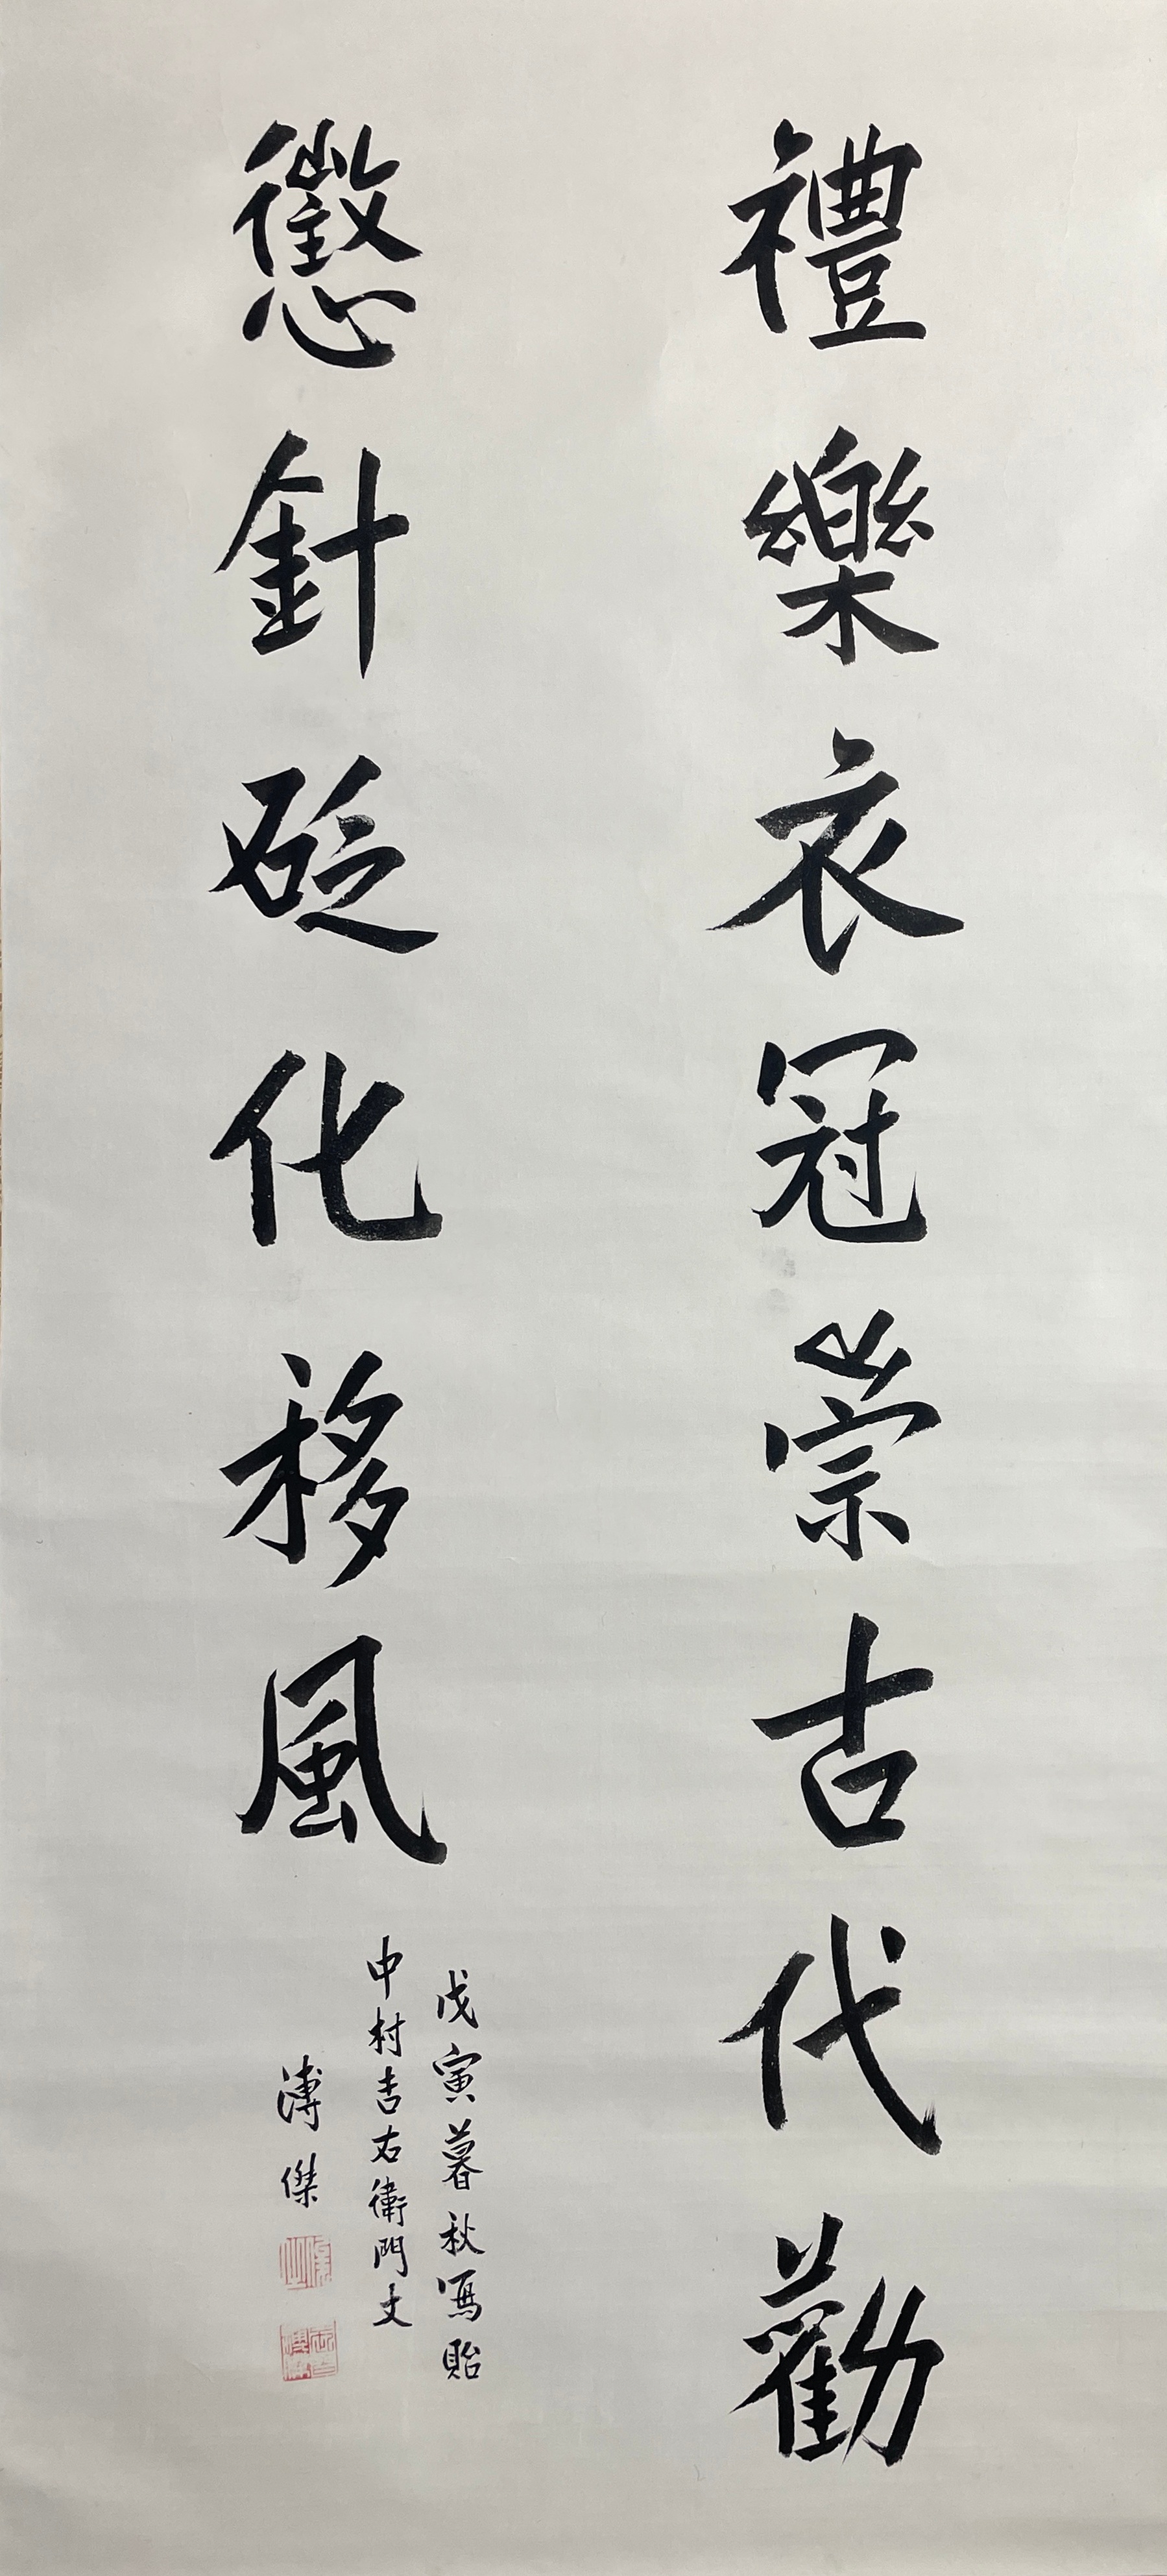 禮樂衣冠崇古代勸
懲針砭化移風
戊寅暮秋寫貽
中村吉右衛門丈
溥傑